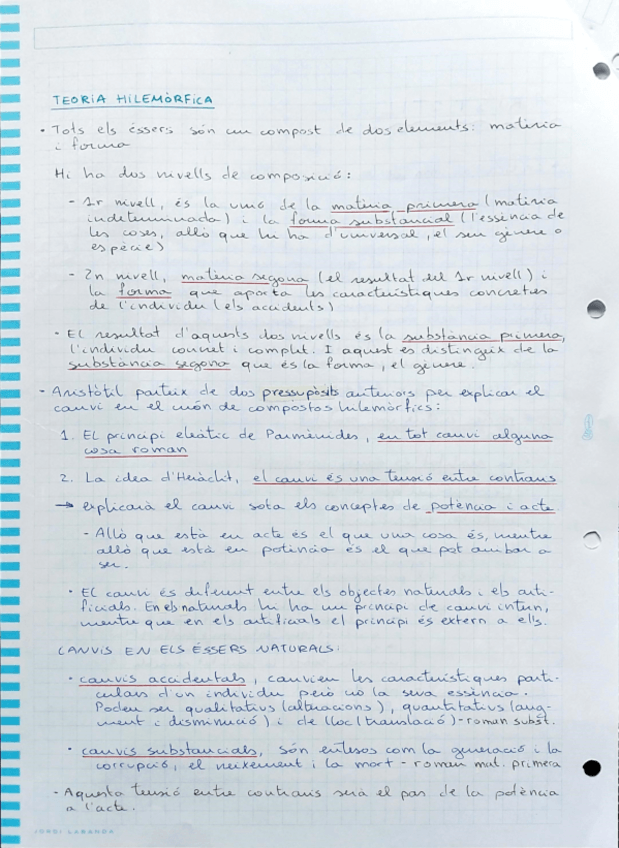 TEORIA HILEMÒRFICA
· Tots els éssers són un compost de dos elements: matèria
i forma
Hi ha dos nivells de composició:
- 1r nivell, és la unió de la matèria primera (matèria
indeterminada) i la forma substancial (l'essència de
les coses, allò que hi ha d'universal, el seu gènere o
espècie)
- 2n nivell, matèria segona (el resultat del 1r nivell) i
la forma que aporta les característiques concretes
de l'individu (els accidents)
· El resultat d'aquests dos nivells és la substància primera,
l'individu concret i complet. I aquest es distingeix de la
substància segona que és la forma, el gènere.
- Aristòtil parteix de dos pressupòsits anteriors per explicar el
canvi en el món de compostos hilemòrfics:
1. El principi eleàtic de Parmènides, en tot canvi alguna
cosa roman
2. La idea d'Heràclit, el canvi és una tensió entre contraris
→ explicarà el canvi sota els conceptes de potència i acte
- Allò que està en acte és el que una cosa és, mentre
allò que està en potència és el que pot arribar a
ser.
· El canvi és diferent entre els objectes naturals i els arti-
ficials. En els naturals hi ha un principi de canvi intern,
mentre que en els artificials el principi és extern a ells.
CANVIS EN ELS ÉSSERS NATURALS:
· canvis accidentals, canvien les característiques parti-
culars d'un individu però no la seva essència.
Poden ser qualitatius (alteracions), quantitatius (aug-
ment i disminució) i de lloc (translació) - roman subst.
· canvis substancials, són entesos com la generació i la
corrupció, el neixement i la mort - roman mat. primera
- Aquesta tensió entre contraris serà el pas de la potència
a l'acte.
JORDI LABANDA